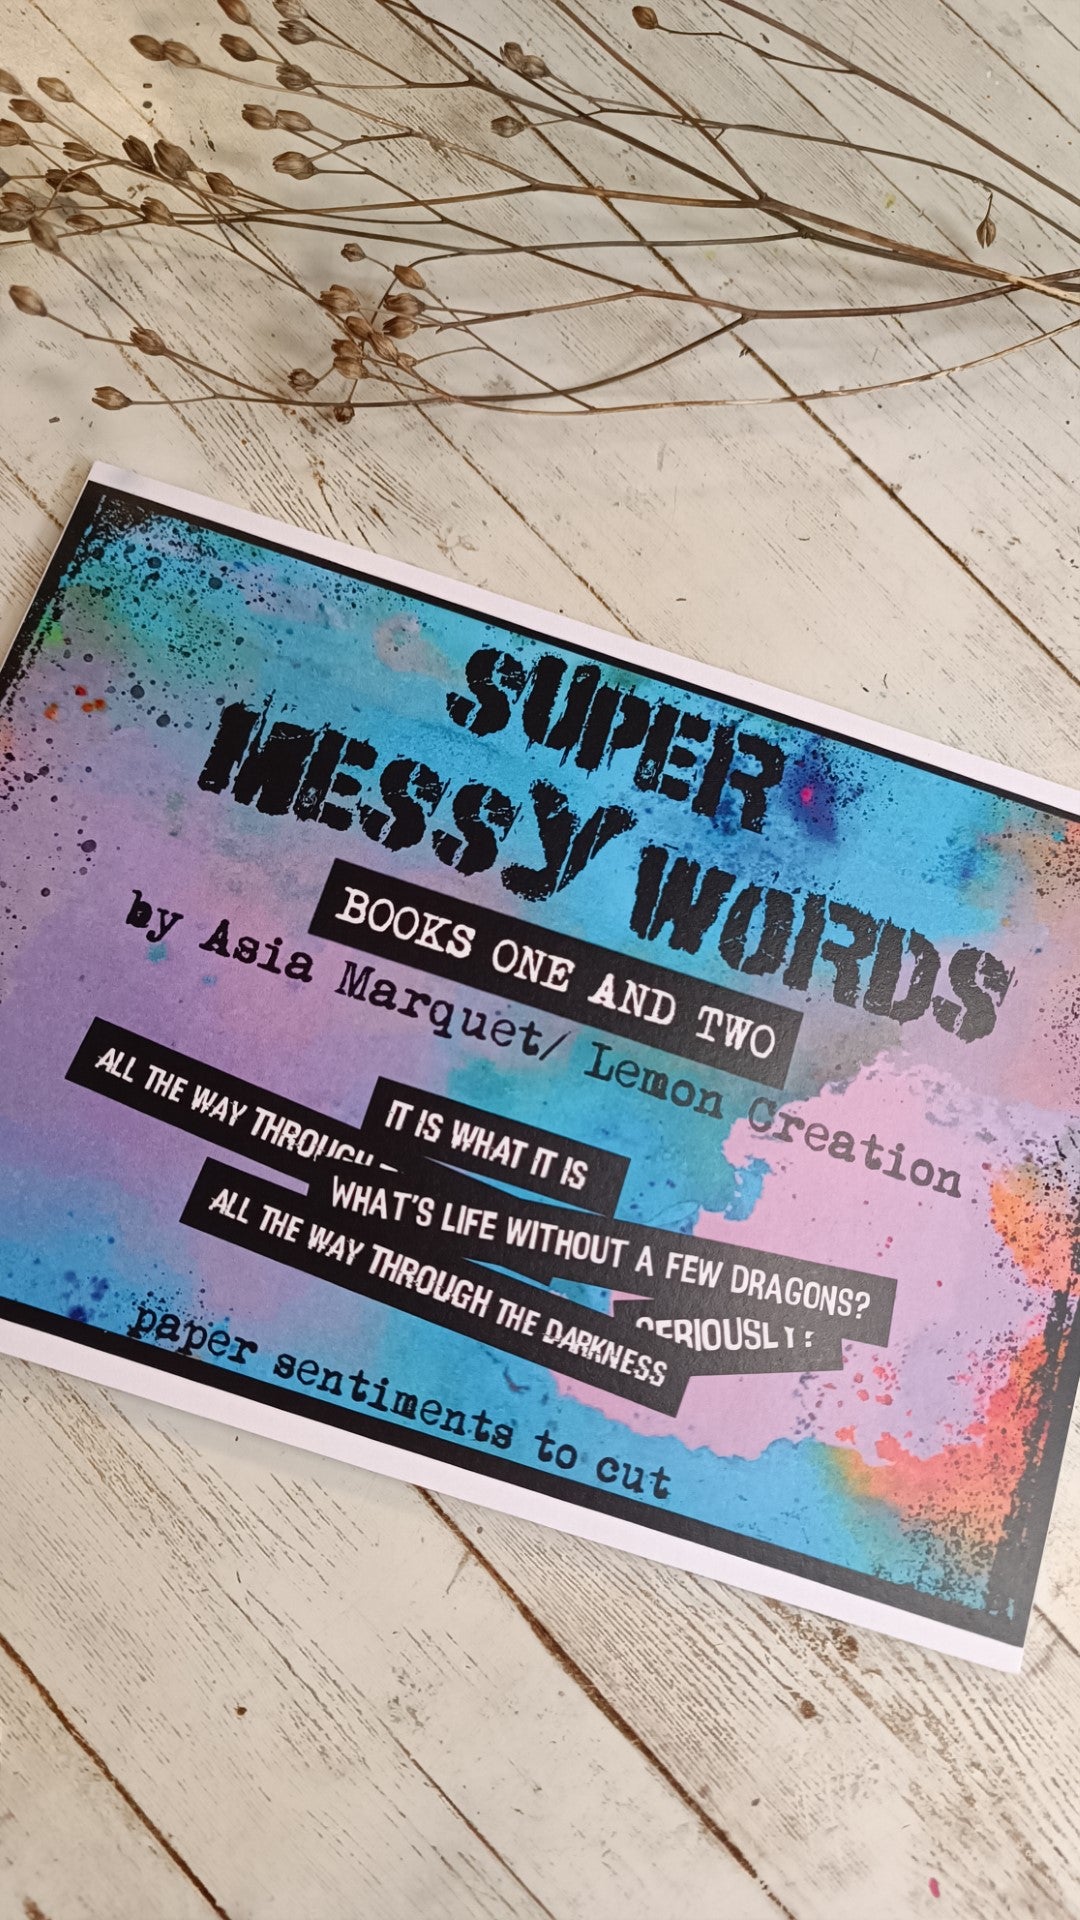 SUPER
MESSY WORDS
BOOKS ONE AND TWO
by Asia Marquet/ Lemon Creation
ALL THE WAY THROUGH
IT IS WHAT IT IS
WHAT'S LIFE WITHOUT A FEW DRAGONS?
SERIOUSLY?
ALL THE WAY THROUGH THE DARKNESS
paper sentiments to cut